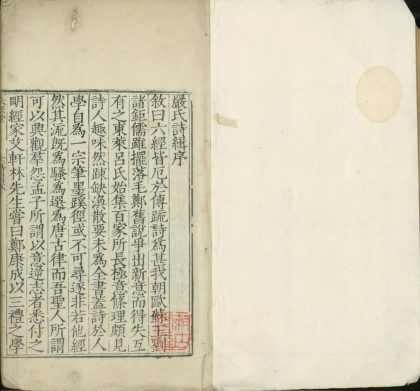 嚴氏詩緝序
敘曰六經皆厄於傳疏詩為甚我朝歐蘇王劉
諸鉅儒雖擺落毛鄭舊說爭出新意而得失互
有之東萊呂氏始集百家所長極意條理頗見
詩人趣味然疎缺渙散要未為全書蓋詩於人
學自為一宗筆墨蹊徑或不可尋逐非若他經
然其流既為騷為選為唐古律而吾聖人所謂
可以興觀羣怨孟子所謂以意逆志者悉付之
明經家艾軒林先生嘗曰鄭康成以三禮之學